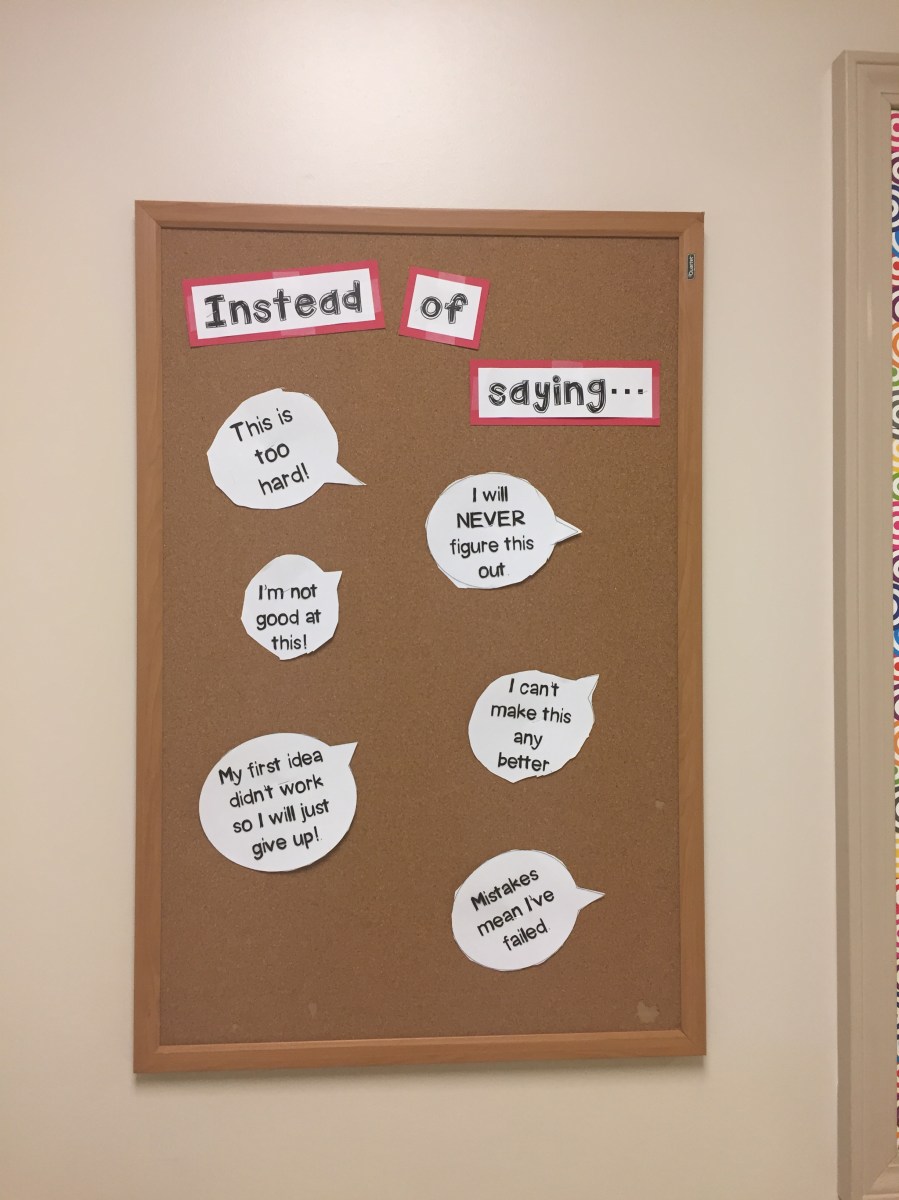 Instead of
saying...
This is
too
hard!
I will
NEVER
figure this
out.
I'm not
good at
this!
I can't
make this
any
better
My first idea
didn't work
so I will just
give up!
Mistakes
mean I've
failed.
Quartet